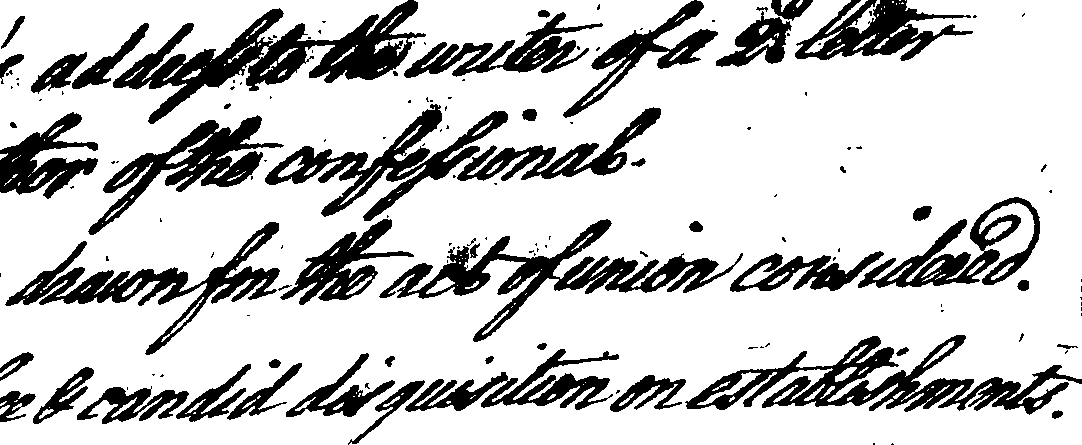 addrefs to the writer of a 2d letter
thor of the confefsional.
drawn fm the act of union considered.
& candid disquisition on establishments.